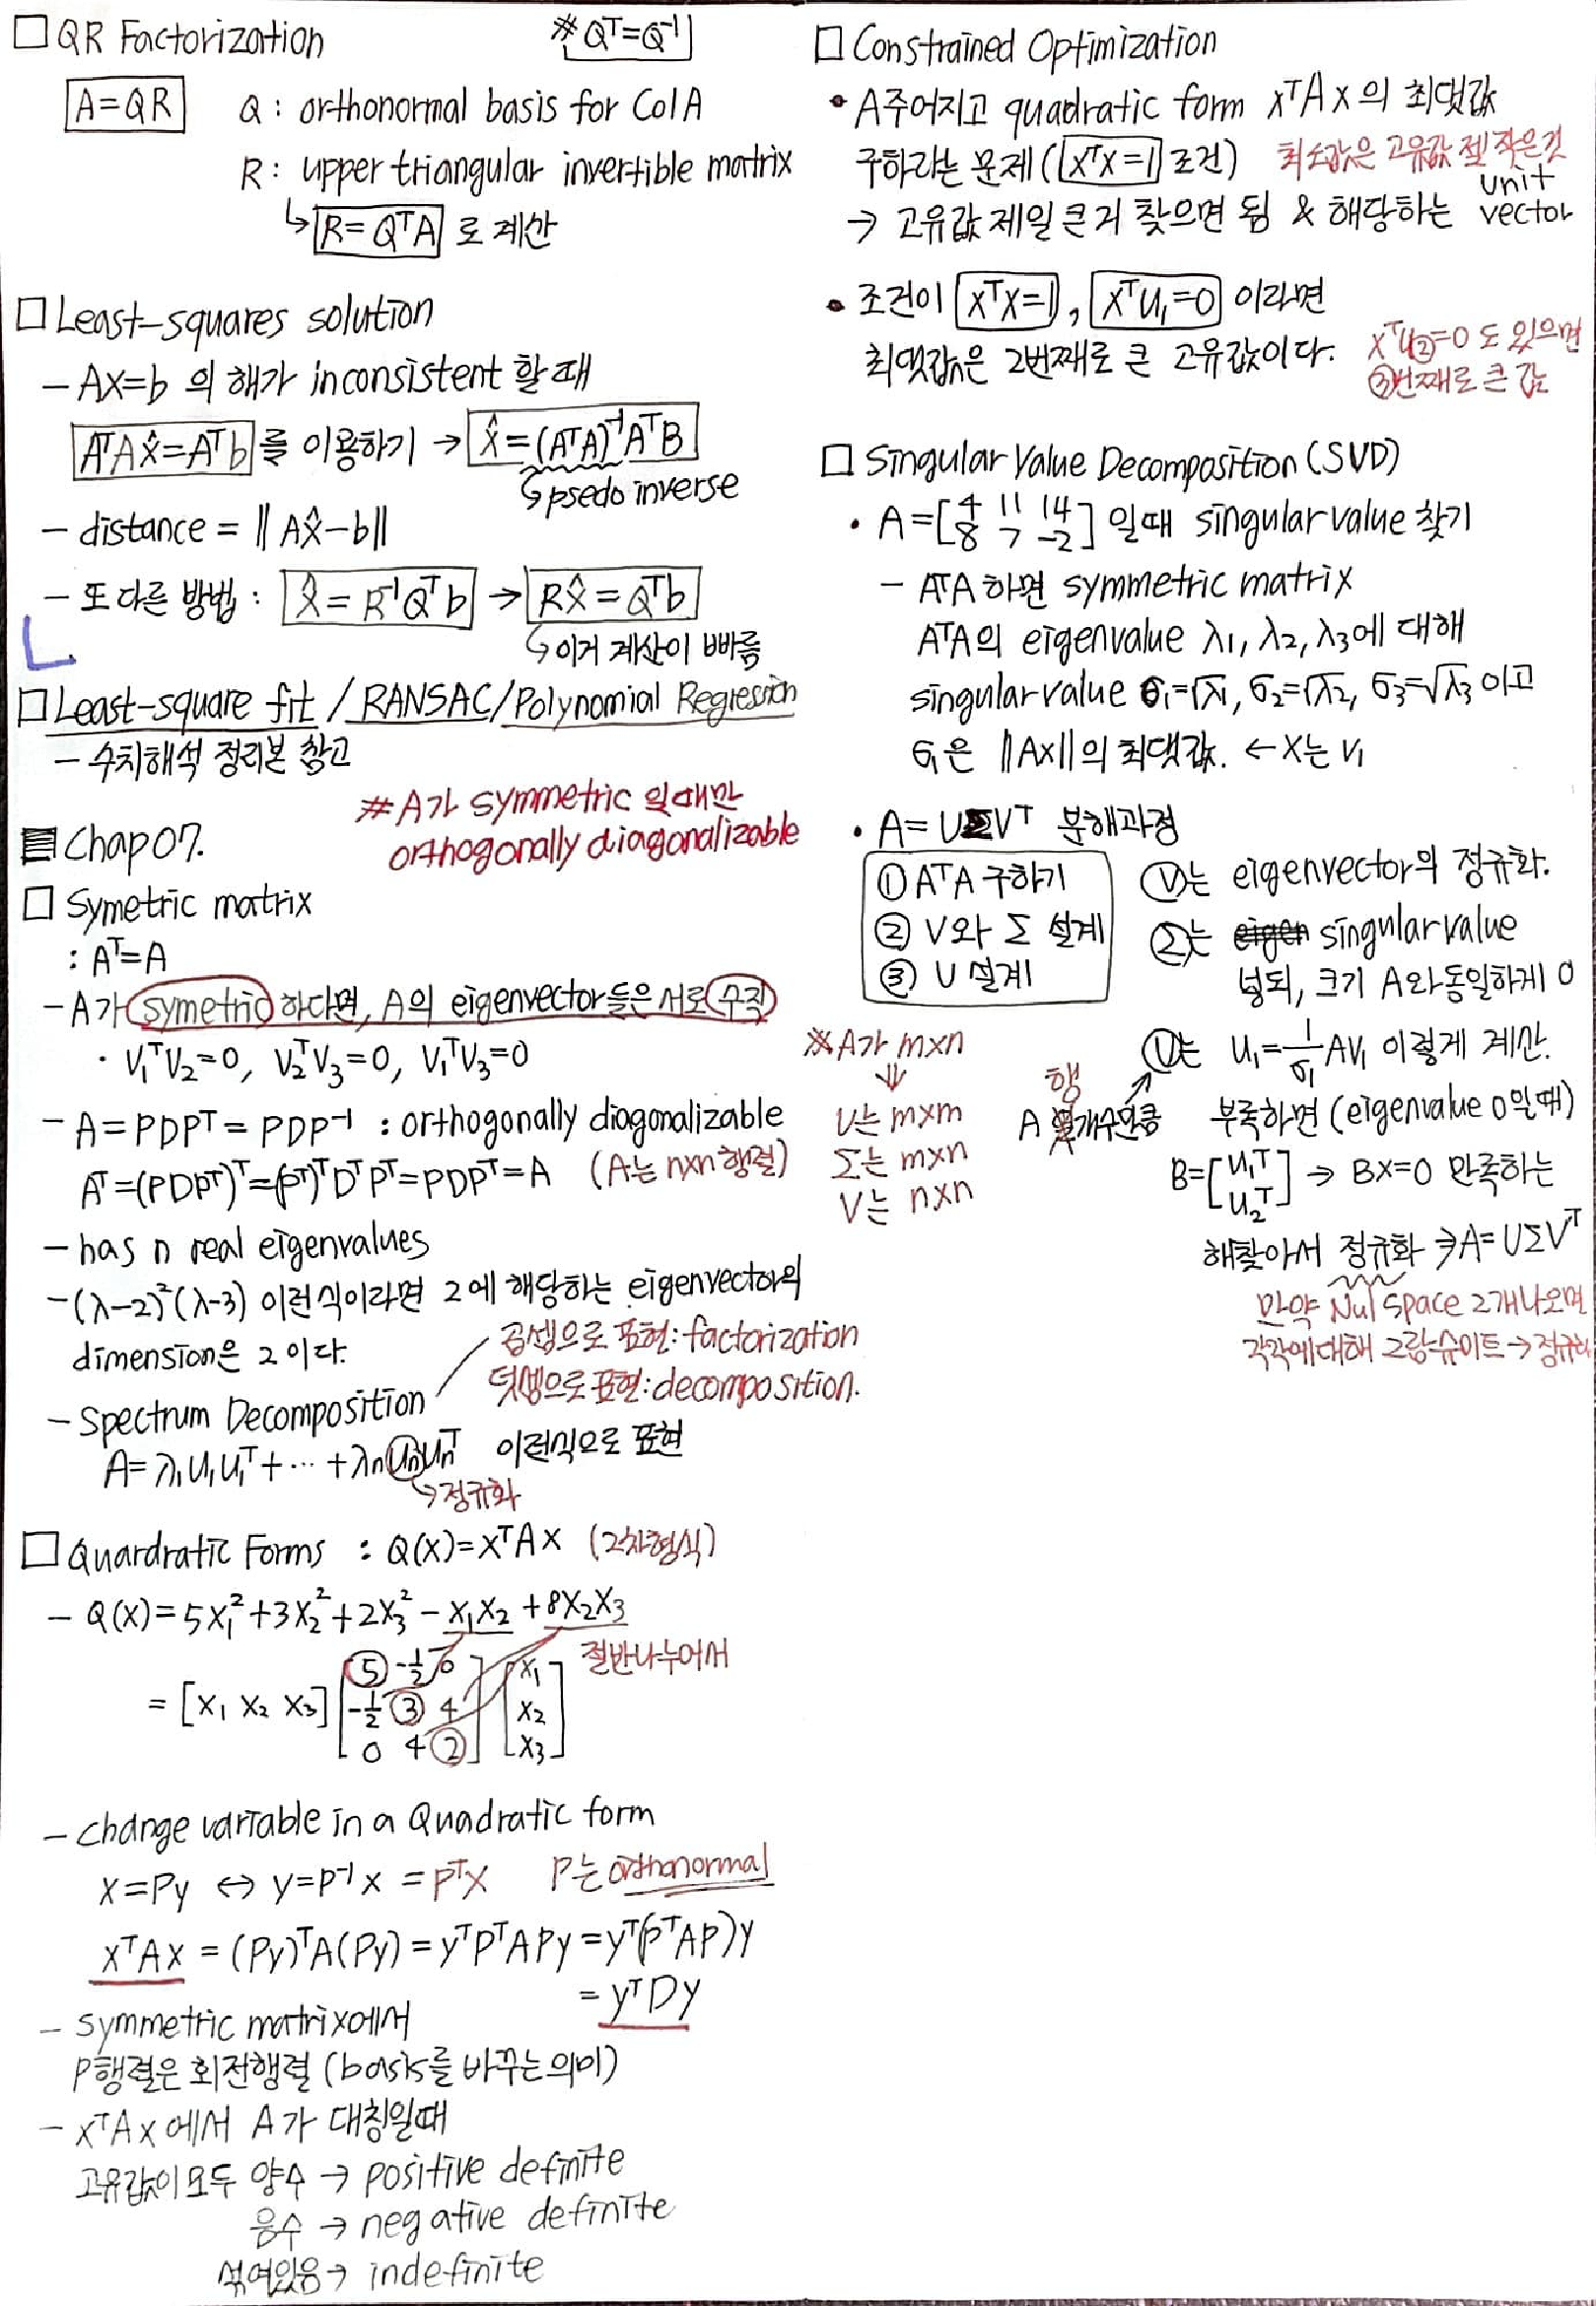 □ QR Factorization
※ Qᵀ=Q⁻¹
A=QR Q : orthonormal basis for ColA
R : upper triangular invertible matrix
↳ R=QᵀA 로 계산
□ Least-squares solution
- Ax=b 의 해가 inconsistent 할 때
AᵀAx̂=Aᵀb 를 이용하기 → x̂=(AᵀA)⁻¹AᵀB
↳ psedo inverse
- distance = ‖Ax̂-b‖
- 또 다른 방법 : x̂=R⁻¹Qᵀb → Rx̂=Qᵀb
↳ 이거 계산이 빠름
□ Least-square fit / RANSAC / Polynomial Regression
- 수치해석 정리본 참고
# A가 symmetric 일때만
orthogonally diagonalizable
Chap 07.
□ Symetric matrix
: Aᵀ=A
- A가 symetric 하다면, A의 eigenvector들은 서로 수직
· V₁ᵀV₂=0, V₂ᵀV₃=0, V₁ᵀV₃=0
- A=PDPᵀ=PDP⁻¹ : orthogonally diagonalizable
Aᵀ=(PDPᵀ)ᵀ=(Pᵀ)ᵀDᵀPᵀ=PDPᵀ=A (A는 n×n 행렬)
- has n real eigenvalues
- (λ-2)²(λ-3) 이런식이라면 2에 해당하는 eigenvector의
dimension은 2이다.
곱셈으로 표현: factorization
덧셈으로 표현: decomposition.
- Spectrum Decomposition
A=λ₁u₁u₁ᵀ+ ··· +λₙuₙuₙᵀ 이런식으로 표현
↳ 정규화
□ Quardratic Forms : Q(x)=xᵀAx (2차형식)
- Q(x)=5x₁²+3x₂²+2x₃²-x₁x₂+8x₂x₃
절반나누어서
5 -1/2 0 x₁
= [x₁ x₂ x₃] -1/2 3 4 x₂
0 4 2 x₃
- change variable in a Quadratic form
x=Py ⇔ y=P⁻¹x =Pᵀx P는 orthonormal
xᵀAx = (Py)ᵀA(Py) = yᵀPᵀAPy = yᵀ(PᵀAP)y
= yᵀDy
- symmetric matrix에서
P행렬은 회전행렬 (basis를 바꾸는 의미)
- xᵀAx 에서 A가 대칭일때
고유값이 모두 양수 → positive definite
음수 → negative definite
섞여있음 → indefinite
□ Constrained Optimization
• A주어지고 quadratic form xᵀAx 의 최댓값
구하라는 문제 (xᵀx=1 조건) 최소값은 고유값 젤 작은것
→ 고유값 제일 큰거 찾으면 됨 & 해당하는 unit vector
• 조건이 xᵀx=1, xᵀu₁=0 이라면
최댓값은 2번째로 큰 고유값이다.
xᵀu②=0 도 있으면
③번째로 큰 값
□ Singular Value Decomposition (SVD)
• A=[4 11 14
8 7 -2] 일때 singular value 찾기
- AᵀA 하면 symmetric matrix
AᵀA의 eigenvalue λ1, λ2, λ3에 대해
singular value σ₁=√λ₁, σ₂=√λ₂, σ₃=√λ₃ 이고
σ₁은 ‖Ax‖의 최댓값. ← x는 v₁
• A=UΣVᵀ 분해과정
① AᵀA 구하기
② V와 Σ 설계
③ U 설계
V는 eigenvector의 정규화.
Σ는 eigen singular value
넣되, 크기 A와 동일하게 0
U는 u₁=1/σ₁ Av₁ 이렇게 계산.
A 행개수만큼
부족하면 (eigenvalue 0일때)
B=[u₁ᵀ
u₂ᵀ] → Bx=0 만족하는
해찾아서 정규화 → A=UΣVᵀ
만약 Nul space 2개나오면
각각에대해 그람슈미트 → 정규화
※A가 m×n
⇓
U는 m×m
Σ는 m×n
V는 n×n